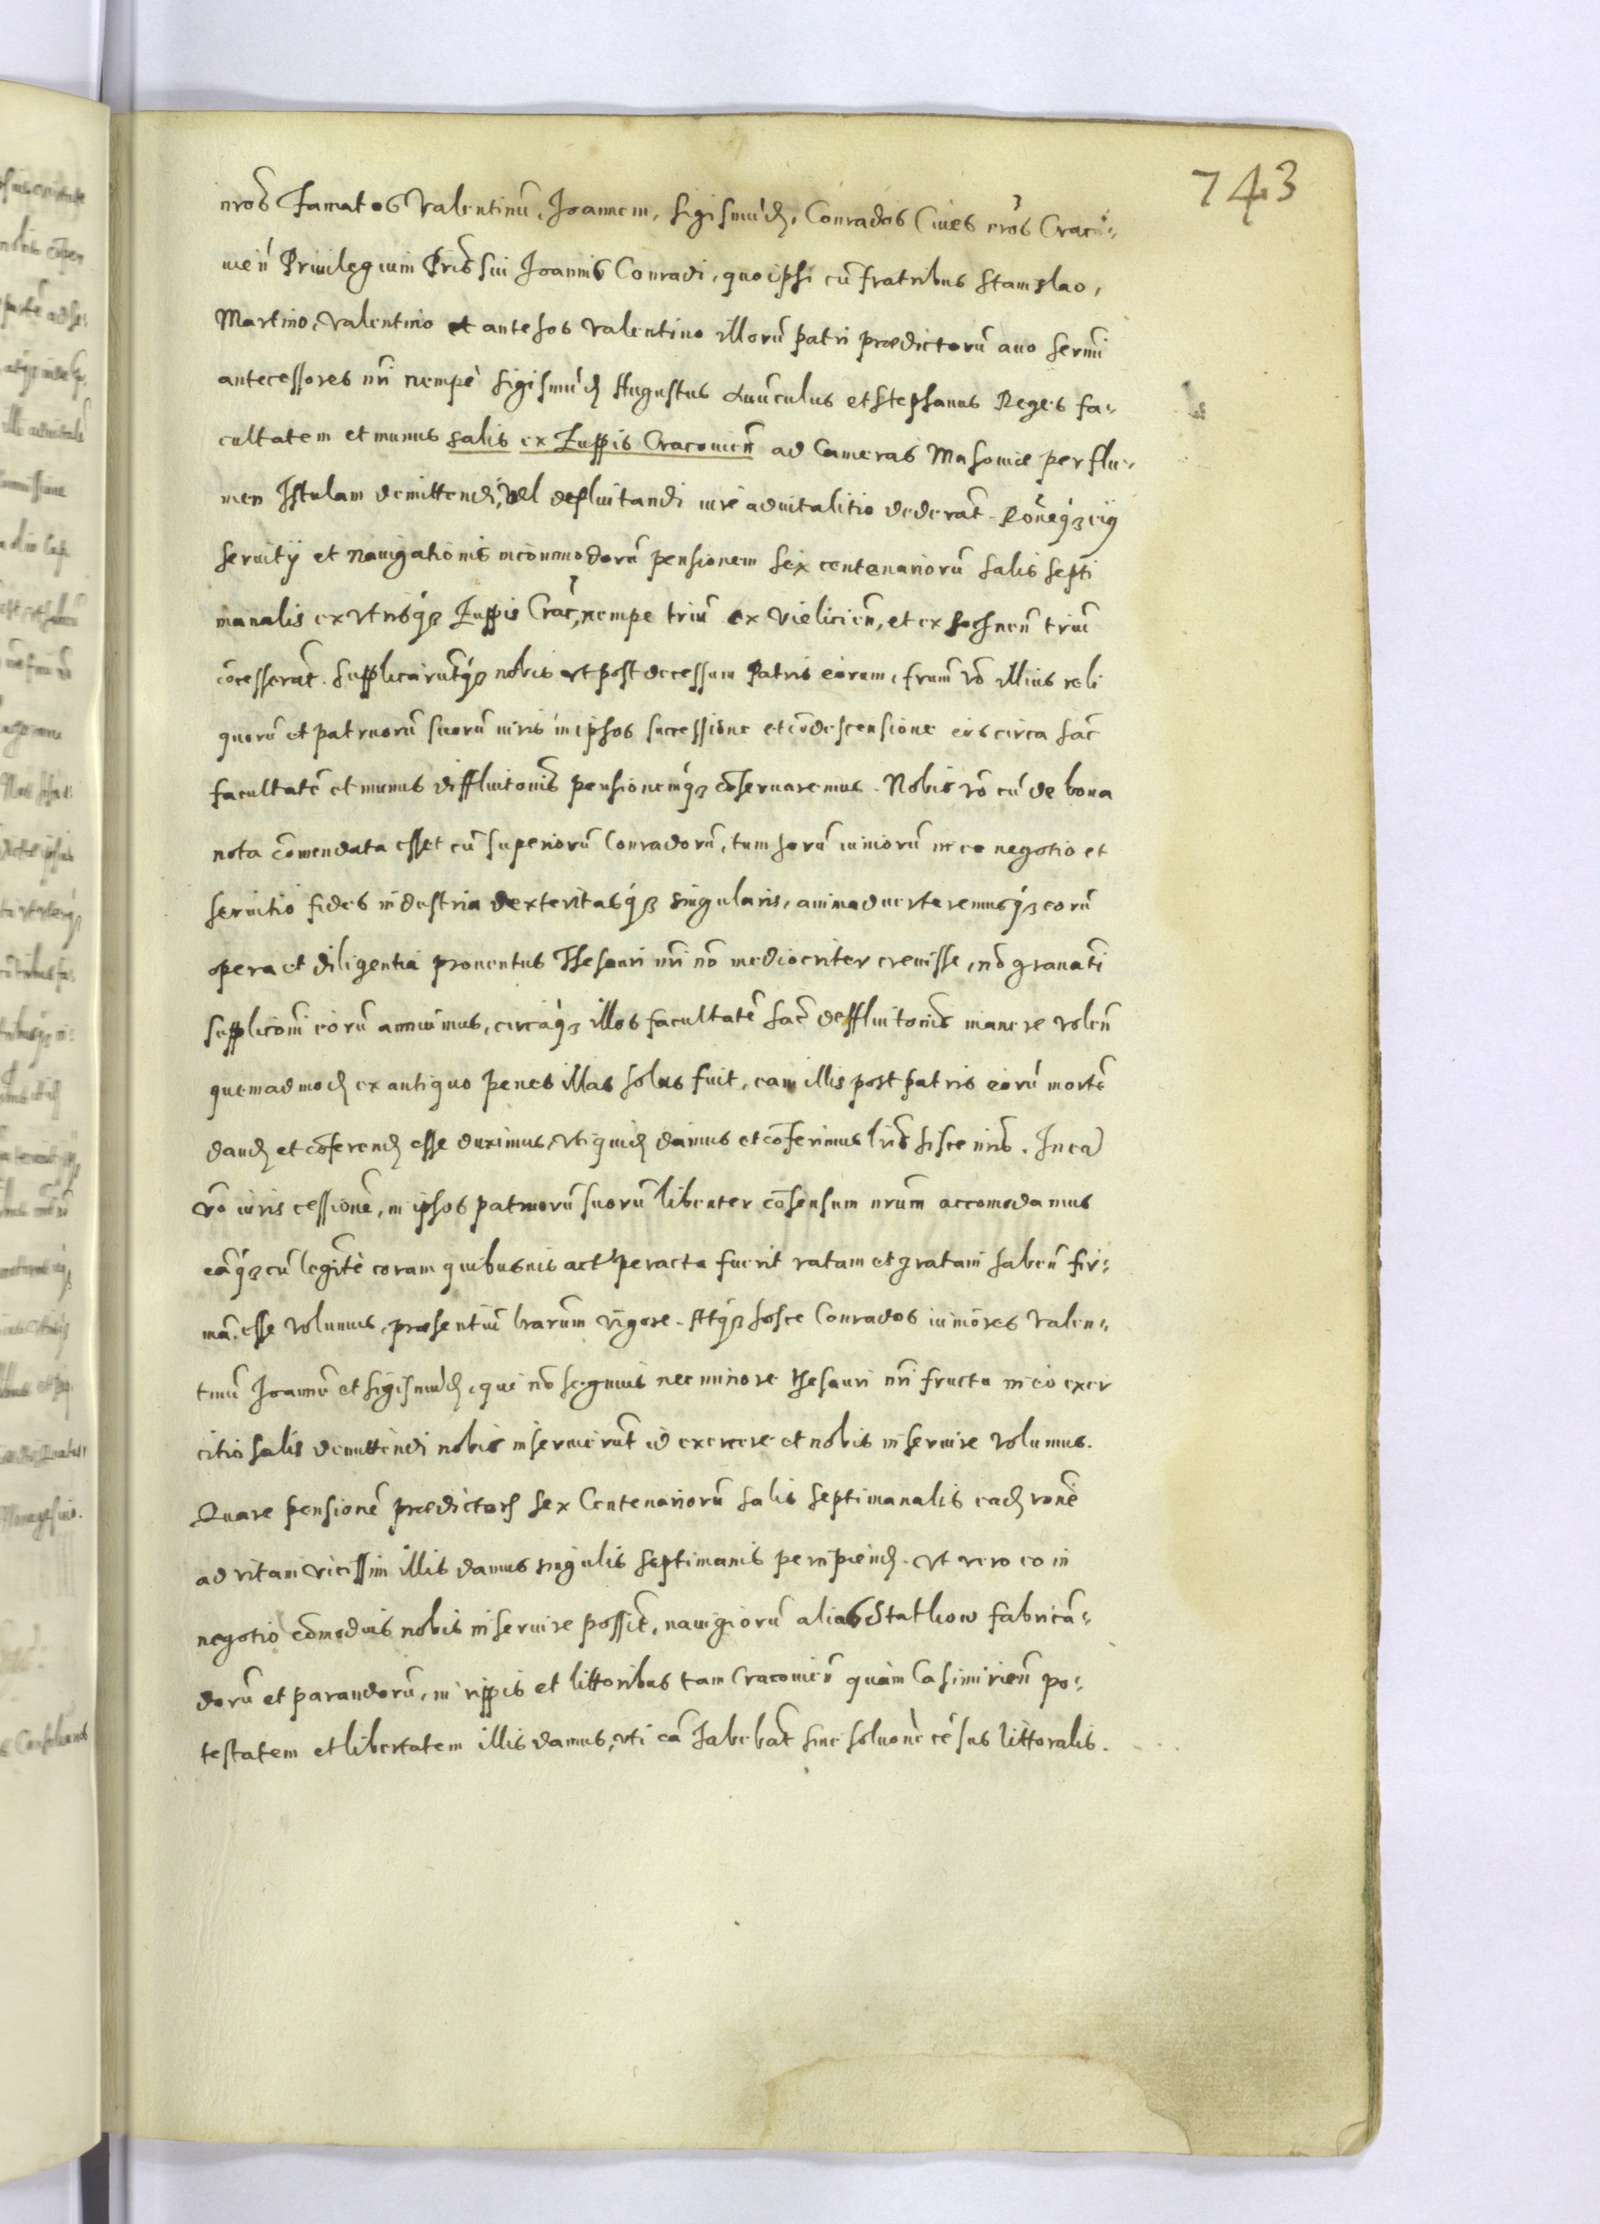 743
nros Famatos Valentinu, Joannem, Sigismud, Conrados Cives nros Craco-
vien Privilegium Pris sui Joannis Conradi, quo ipsi cu fratribus Stanislao,
Martino, Valentino et ante hos Valentino illoru patri prædictoru avo Sermi
antecessores nri nempe Sigismud Augustus Avuculus et Stephanus Reges fa-
cultatem et munus salis ex Zuppis Cracovien ad Cameras Masovie per flu-
men Istulam demittendi, vel defluitandi iure advitalitio dederat. Roneq3 eig
servitij et navigationis incommodoru pensionem sex centenarioru salis septi
manalis ex utrisq3 Zuppis Crac, nempe triu ex Vielicien, et ex Bochnen triu
cocesserat. Supplicaruntq3 nobis ut post decessum Patris eorum, frum vo illius reli
quoru et patruoru suoru iuris in ipsos successione et codescensione eos circa hac
facultate et munus diffluitonis pensionemq3 coservaremus. Nobis vo cu de bona
nota comendata esset cu superioru Conradoru, tum horu iunioru in eo negotio et
servitio fides industria dexteritasq3 singularis, animadverteremusq3 eoru
opera et diligentia proventus Thesauri nri no mediocriter crevisse, no gravati
suppliconi eoru annuimus, circaq3 illos facultate hac deffluitonis manere volen
quemadmod ex antiquo penes illas solus fuit, eam illis post patris eoru morte
dand et coferend esse duximus, utiquid damus et coferimus lris hisce nris. In ea
vo iuris cessione, in ipsos patruoru suoru libenter cosensum nrum accomodamus
eaq3 cu legitte coram quibusvis act peracta fuerit ratam et gratam haben fir-
ma esse volumus, præsentiu lrarum vigore. Atq3 hosce Conrados iuniores Valen-
tinu Joanne et Sigismud, qui no segnius nec minore thesauri nri fructu in eo exer
citio salis demittendi nobis inservierut id exercere et nobis inservire volumus.
Quare pensione prædictor sex Centenarioru salis septimanalis ead rone
ad vitam vicissim illis damus singulis septimanis percipiend. Ut vero eo in
negotio comodius nobis inservire possit, navigioru alias Stathow fabrica-
doru et parandoru, in rippis et littoribus tam Cracovien quam Casimirien po-
testatem et libertatem illis damus, uti ea habebat sine solvone cesus littoralis.